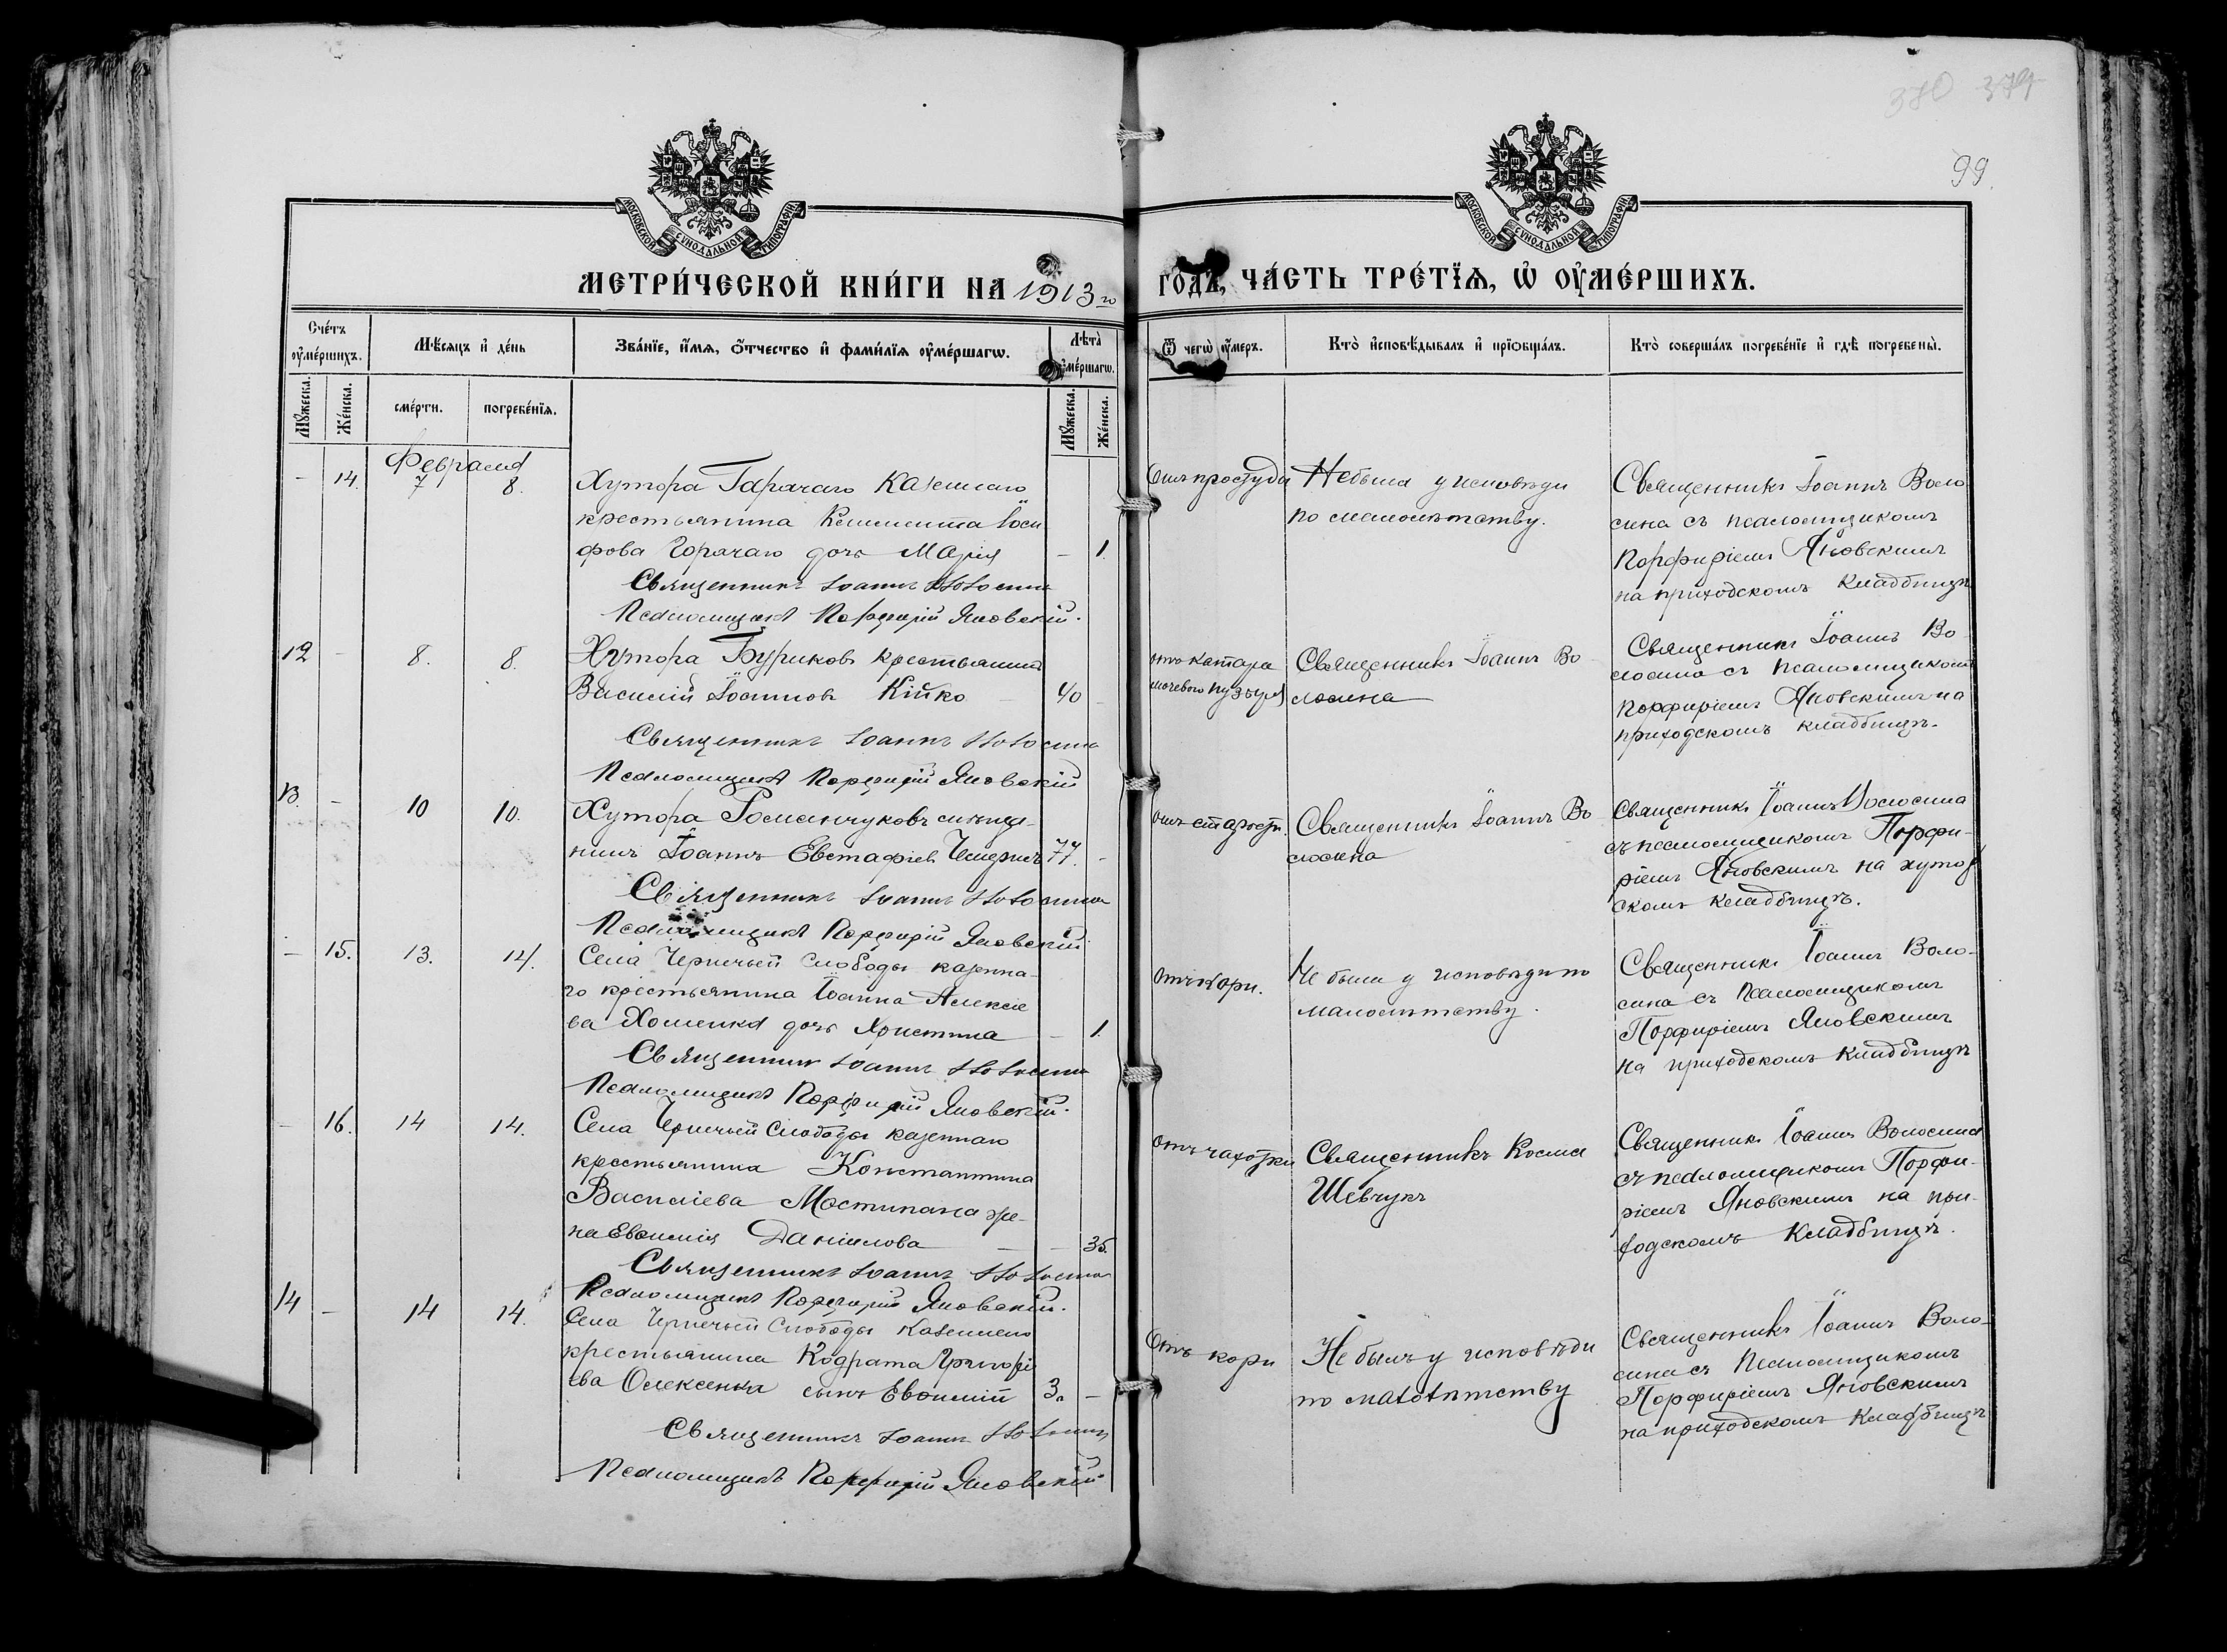 370 379
99.
МОСКОВСКОЙ СѴНОДАЛЬНОЙ ТИПОГРАФІИ
МОСКОВСКОЙ СѴНОДАЛЬНОЙ ТИПОГРАФІИ
МЕТРИ́ЧЕСКОЙ КНИ́ГИ НА 1913 го ГОДЪ, ЧА́СТЬ ТРЕ́ТЇѦ, Ѡ҆ ОУ҆МЕ́РШИХЪ.
Сче́тъ оу҆ме́ршихъ.
Мѣ́сяцъ и҆ де́нь
Зва́нїе, и҆́мѧ, ѻ҆́тчество и҆ фами́лїѧ оу҆ме́ршагѡ.
Лѣ́та оу҆ме́ршагѡ.
Ѿ чегѡ̀ оу҆́меръ.
Кто̀ и҆сповѣ́дывалъ и҆ прїѡбща́лъ.
Кто̀ соверша́лъ погребе́нїе и҆ гдѣ̀ погребены̀.
Мꙋ́жеска.
Же́нска.
сме́рти.
погребе́нїѧ.
Мꙋ́жеска.
Же́нска.
Февраля
- 14. 7 8.
Хутора Гарячаго казеннаго
крестьянина Климента Іоси
фова Горячаго дочь Марія - 1.
Священникъ Іоаннъ Волосина
Псаломщикъ Порфирій Яновскій.
Отъ простуды
Небыла у исповѣди
по малолѣтству.
Священникъ Іоаннъ Воло
сина съ псаломщикомъ
Порфиріемъ Яновскимъ
на приходскомъ кладбищѣ
12 - 8. 8.
Хутора Буриковъ крестьянинъ
Василій Іоанновъ Кійко 40 -
Священникъ Іоаннъ Волосина
Псаломщикъ Порфирій Яновскій
отъ катара
мочевого пузыря
Священникъ Іоаннъ Во
лосина
Священникъ Іоаннъ Во
лосина съ псаломщикомъ
Порфиріемъ Яновскимъ на
приходскомъ кладбищѣ.
13. - 10 10.
Хутора Романчуковъ
Іоаннъ Евстафіевъ 77. -
Священникъ Іоаннъ Волосина
Псаломщикъ Порфирій Яновскій
отъ старости.
Священникъ Іоаннъ Во
лосина
Священникъ Іоаннъ Волосина
съ псаломщикомъ Порфи-
ріемъ Яновскимъ на хутор
скомъ кладбищѣ.
- 15. 13. 14.
Села Чернечьей Слободы казенна-
го крестьянина Іоанна Алексіе
ва Хоменка дочь Христина - 1.
Священникъ Іоаннъ Волосина
Псаломщикъ Порфирій Яновскій.
Отъ кори.
Не была у исповѣди по
малолѣтству.
Священникъ Іоаннъ Воло-
сина съ Псаломщикомъ
Порфиріемъ Яновскимъ
на приходскомъ кладбищѣ
- 16. 14 14.
Села Чернечьей Слободы казеннаго
крестьянина Константина
Василіева Мостипана же-
на Евфимія Даніилова - 35.
Священникъ Іоаннъ Волосина
Псаломщикъ Порфирій Яновскій.
Отъ чахотки
Священникъ Косма
Шевчукъ
Священникъ Іоаннъ Волосина
съ псаломщикомъ Порфи-
ріемъ Яновскимъ на при-
ходскомъ кладбищѣ.
14 - 14 14.
Села Чернечьей Слободы казеннаго
крестьянина Кодрата Григорі
ева Олексенка сынъ Евфимій 3. -
Священникъ Іоаннъ Волосина
Псаломщикъ Порфирій Яновскій
Отъ кори
Не былъ у исповѣди
по малолѣтству
Священникъ Іоаннъ Воло-
сина съ Псаломщикомъ
Порфиріемъ Яновскимъ
на приходскомъ кладбищѣ